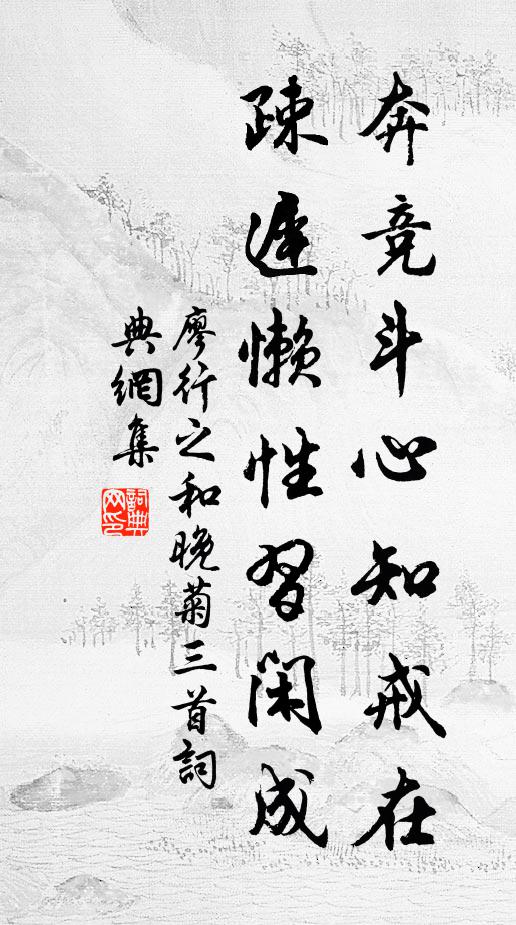 奔竞斗心知戒在
疎遲懒性習閑成
廖行之和晚菊三首詞
典網集
詞典
网印